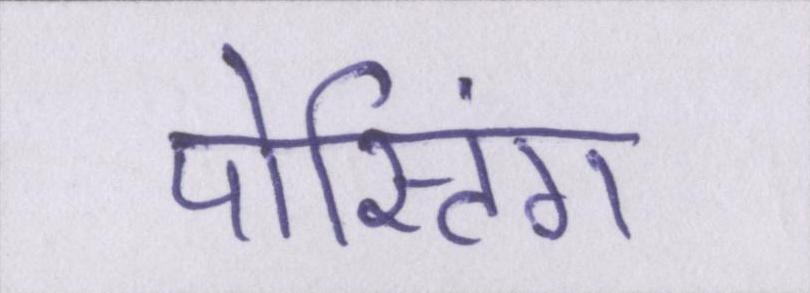 पोस्टिंग